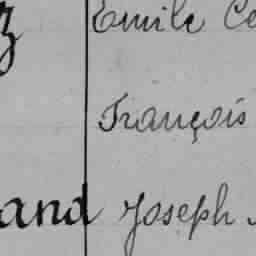 Emile
François
and Joseph